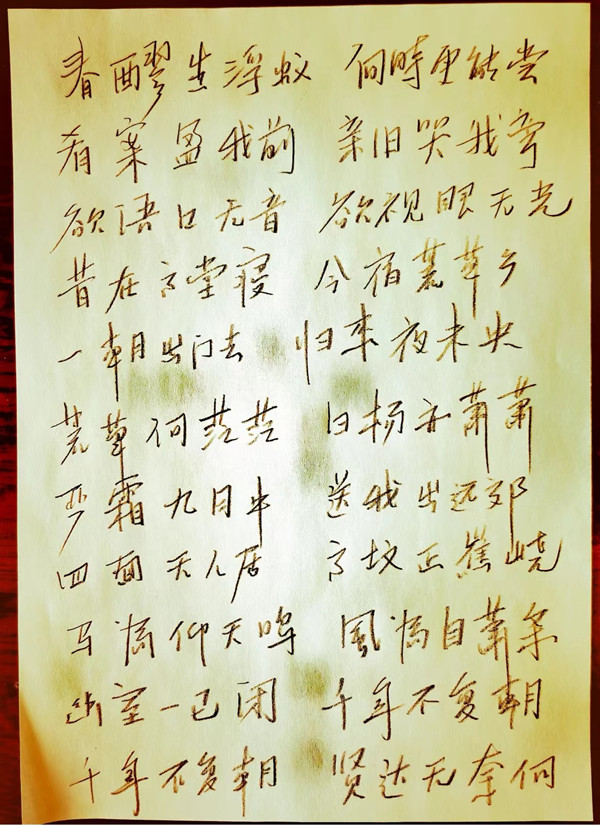 春醪生浮蚁 何時更能尝
肴案盈我前 亲旧哭我旁
欲语口无音 欲视眼无光
昔在高堂寝 今宿荒草乡
一朝出门去 归来夜未央
荒草何茫茫 白杨亦萧萧
严霜九月中 送我出远郊
四面无人居 高坟正嶣峣
马为仰天鸣 風为自萧条
幽室一已闭 千年不复朝
千年不复朝 贤达无奈何